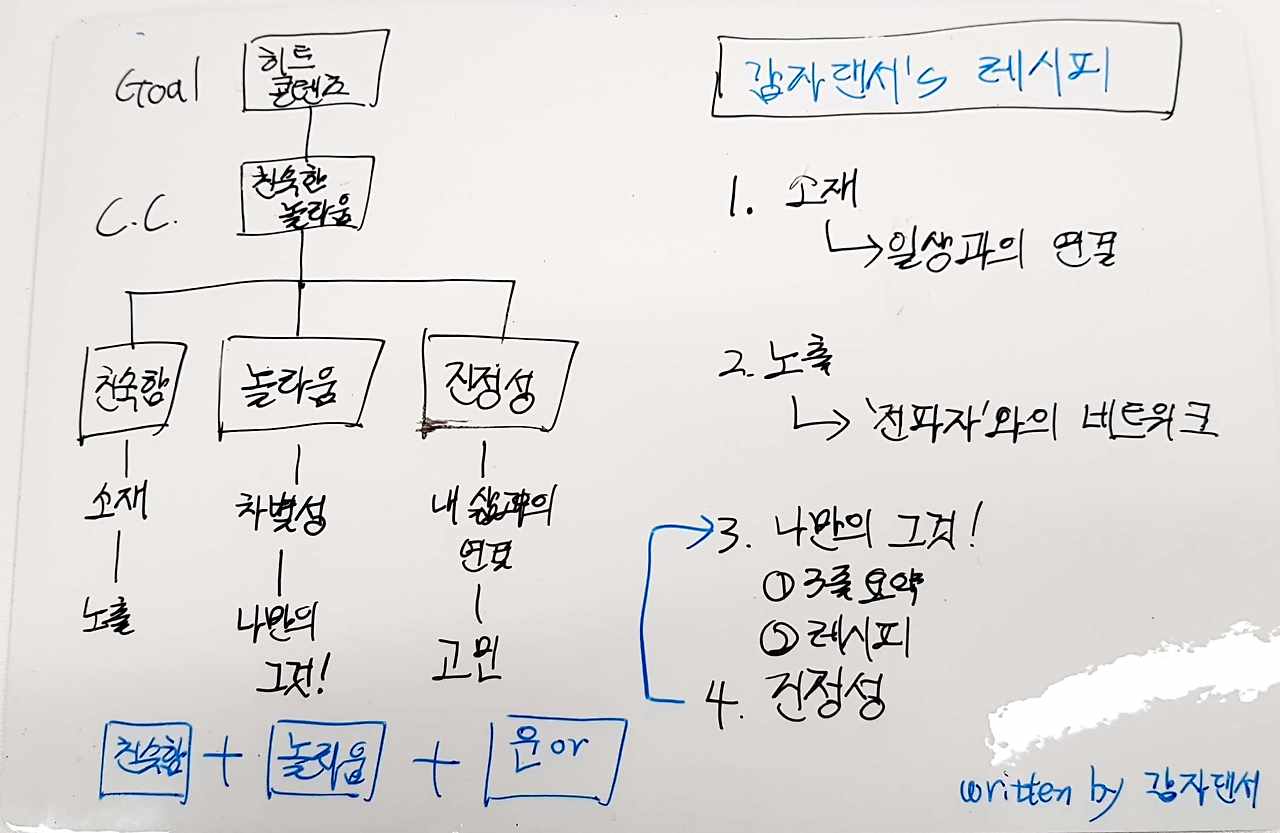 Goal
히트
콘텐츠
C.C.
친숙한
놀라움
친숙함
놀라움
진정성
소재
차별성
내 삶과의
연결
노출
나만의
그것!
고민
친숙함 + 놀라움 + 운 or
감자댄서's 레시피
1. 소재
↳일생과의 연결
2. 노출
↳'전파자'와의 네트워크
3. 나만의 그것!
① 3줄요약
② 레시피
4. 진정성
written by 감자댄서